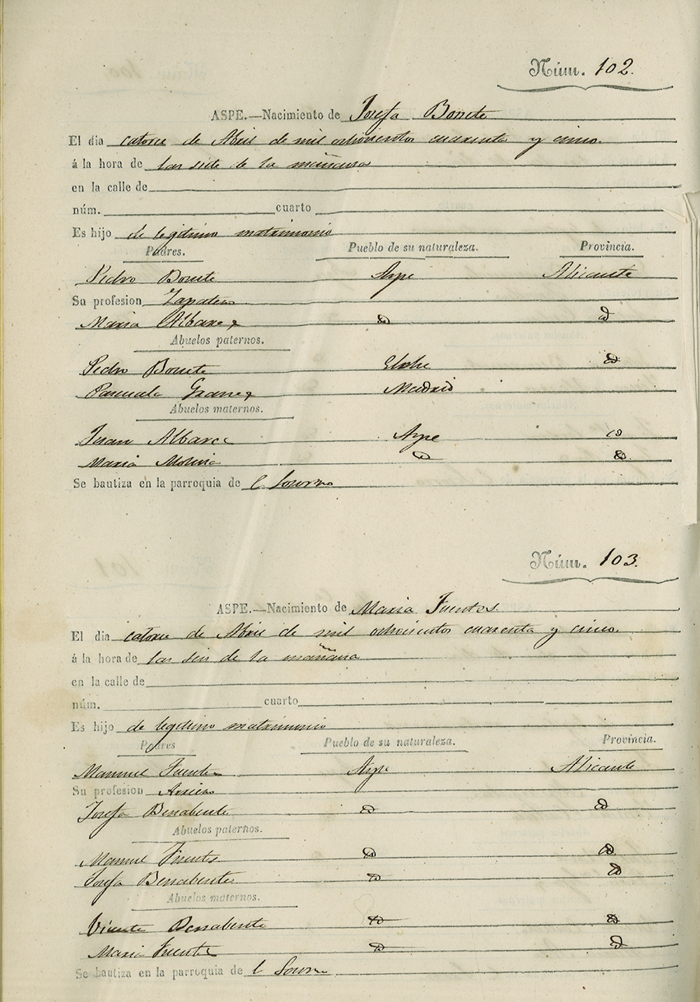 Núm. 102.
ASPE.—Nacimiento de Josefa Bonete
El dia catorce de Abril de mil ochocientos cuarenta y cinco.
á la hora de las siete de la mañana
en la calle de
núm. cuarto
Es hijo de legitimo matrimonio
Padres. Pueblo de su naturaleza. Provincia.
Pedro Bonete Aspe Alicante
Su profesion Zapatero
Maria Albarez
Abuelos paternos.
Pedro Bonete Elche
Pascuala Madrid
Abuelos maternos.
Juan Albarez Aspe
Maria Molina
Se bautiza en la parroquia de
Núm. 103.
ASPE.—Nacimiento de Maria Fuentes.
El dia catorce de Abril de mil ochocientos cuarenta y cinco.
á la hora de las seis de la mañana
en la calle de
núm. cuarto
Es hijo de legitimo matrimonio
Padres Pueblo de su naturaleza. Provincia.
Manuel Fuentes Aspe Alicante
Su profesion
Josefa Benabente
Abuelos paternos.
Manuel Fuentes
Josefa Benabente
Abuelos maternos.
Vicente Benabente
Maria Fuentes
Se bautiza en la parroquia de